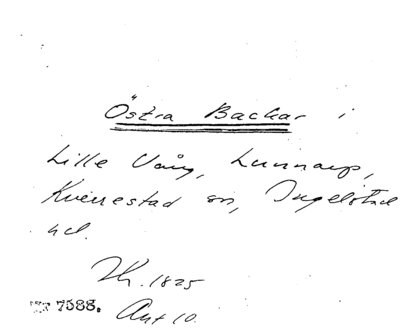 Östra Backar i
Lille Vång, Lunnarp,
Kverrestad sn, Ingelstad
hd.
Th. 1825
7588. Ant 10.